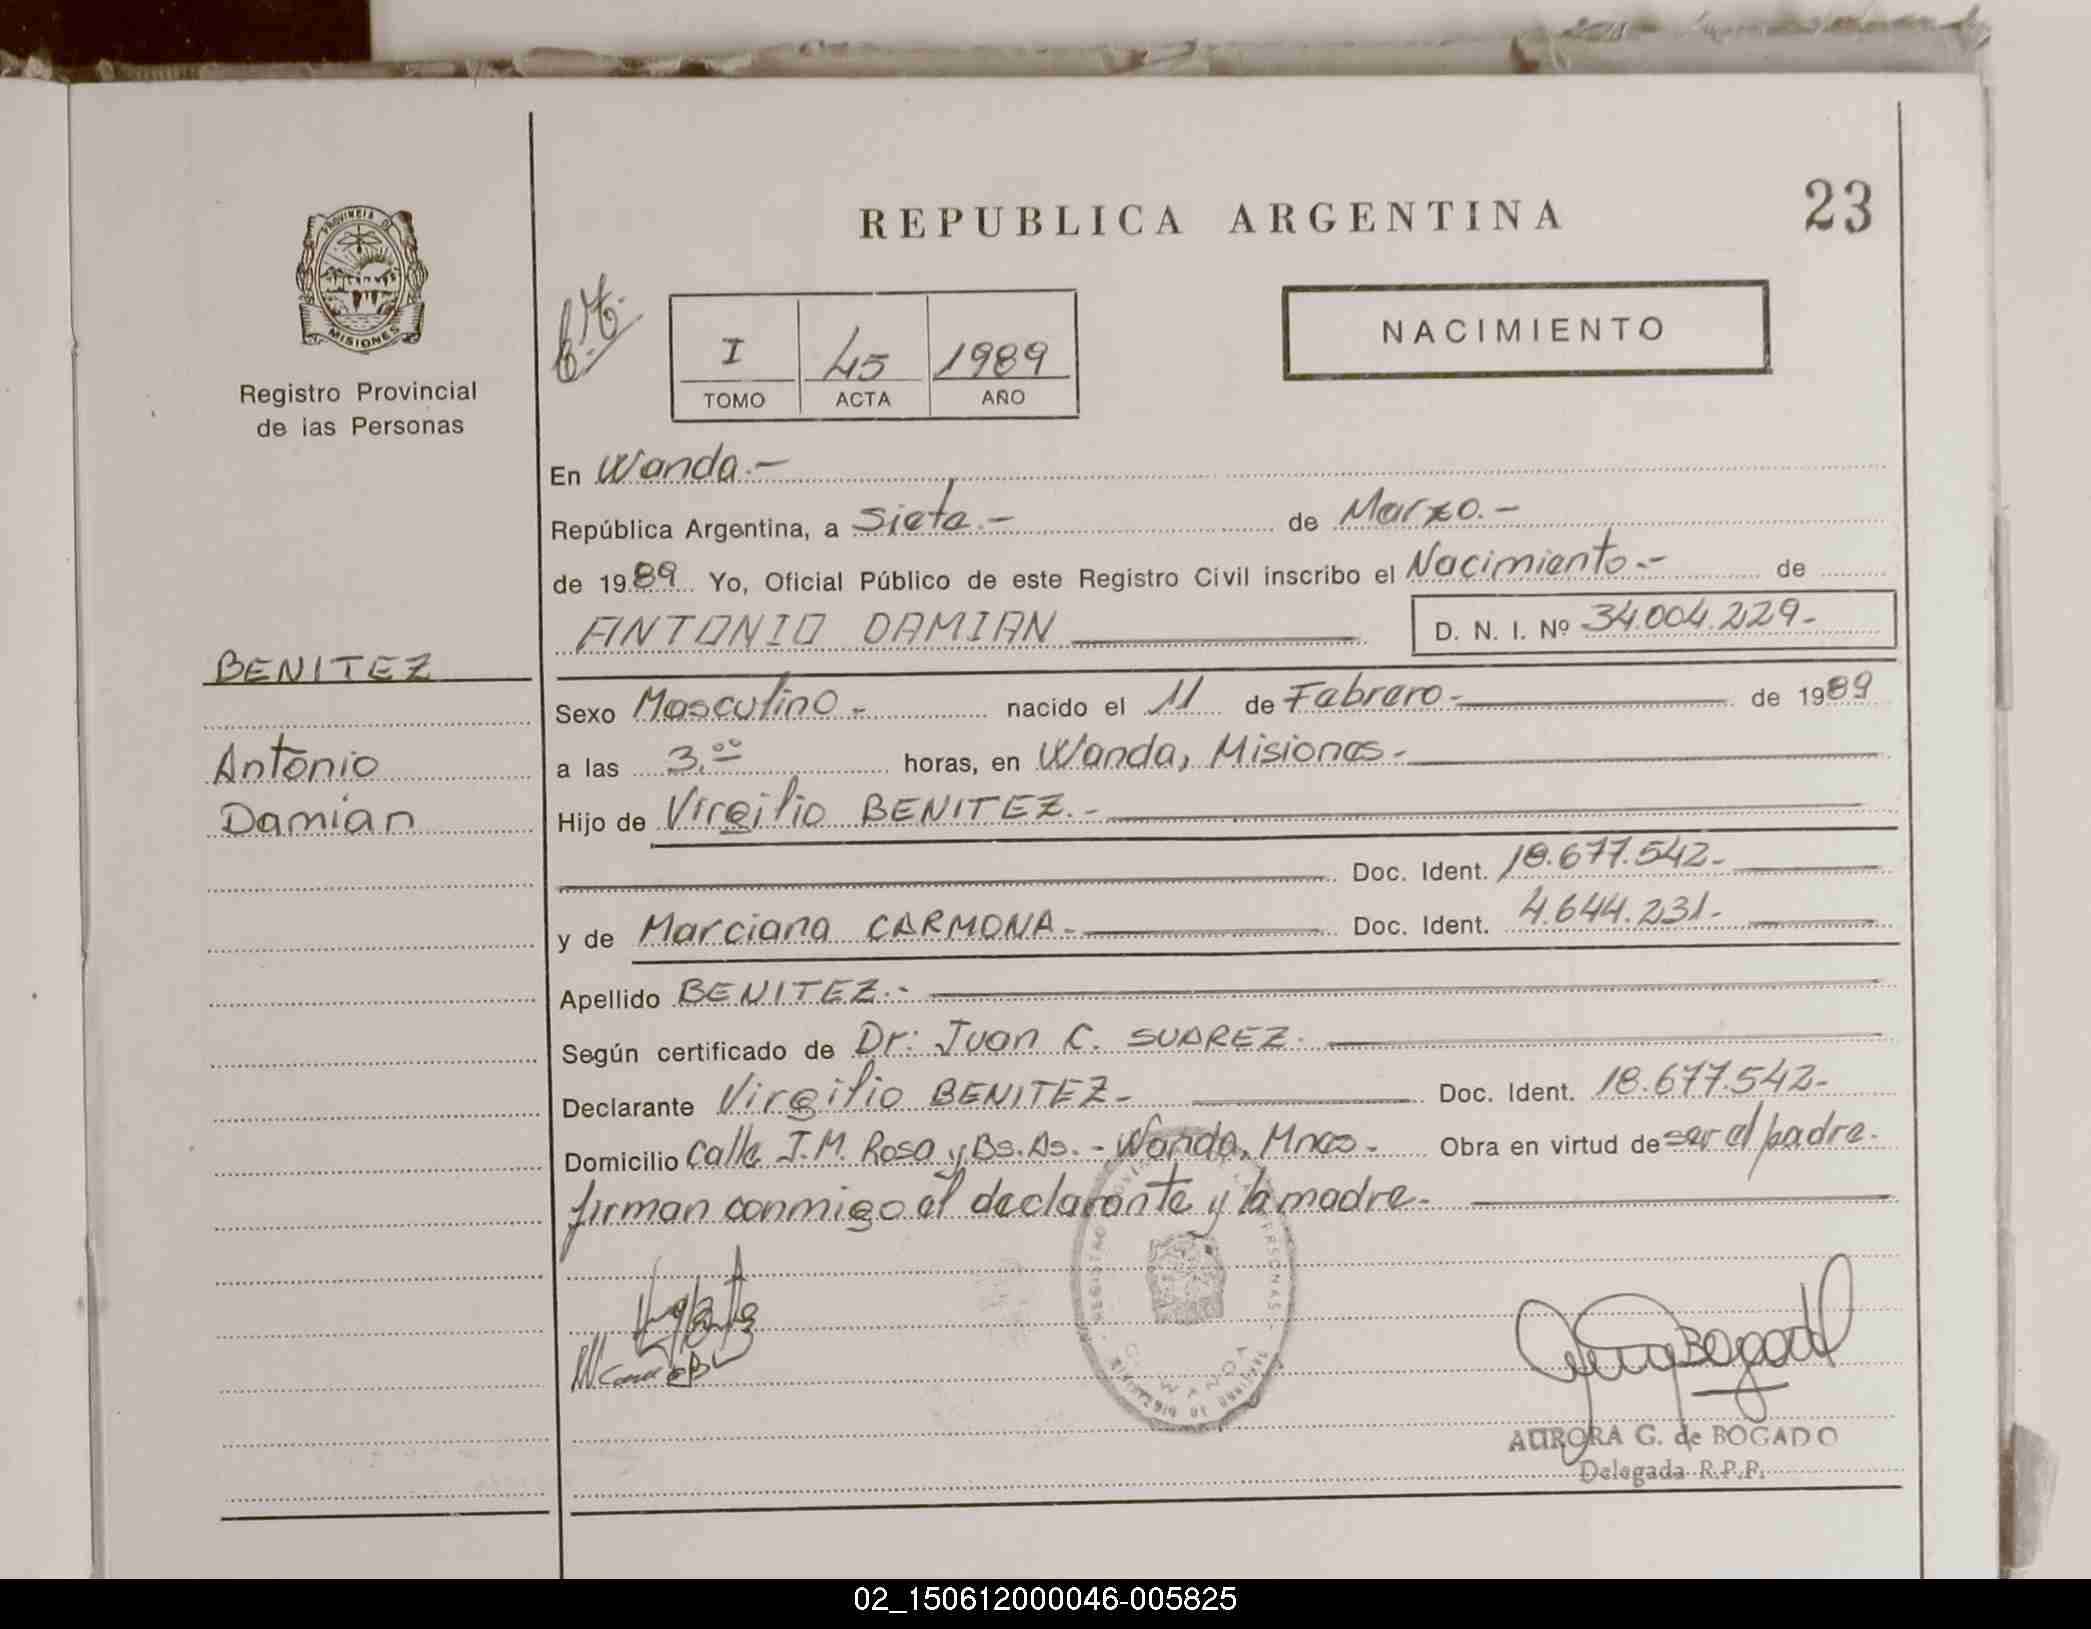 REPUBLICA ARGENTINA
23
PROVINCIA DE
MISIONES
Registro Provincial
de las Personas
I
45
1989
TOMO
ACTA
AÑO
NACIMIENTO
En Wanda.-
República Argentina, a Siete.- de Marzo.-
de 1989 Yo, Oficial Público de este Registro Civil inscribo el Nacimiento.- de
ANTONIO DAMIAN D. N. I. Nº 34.004.229-
BENITEZ
Antonio
Damian
Sexo Masculino.- nacido el 11 de Febrero.- de 1989
a las 3.00 horas, en Wanda, Misiones.-
Hijo de Virgilio BENITEZ.-
Doc. Ident. 18.677.542-
y de Marciana CARMONA- Doc. Ident. 4.644.231-
Apellido BENITEZ.-
Según certificado de Dr: Juan C. SUAREZ.
Declarante Virgilio BENITEZ- Doc. Ident. 18.677.542-
Domicilio Calle J.M. Rosa y Bs. As. - Wanda, Mnes- Obra en virtud de ser el padre-
firman conmigo el declarante y la madre-
WANDA
Bogado
AURORA G. de BOGADO
Delegada R.P.P.
02_150612000046-005825